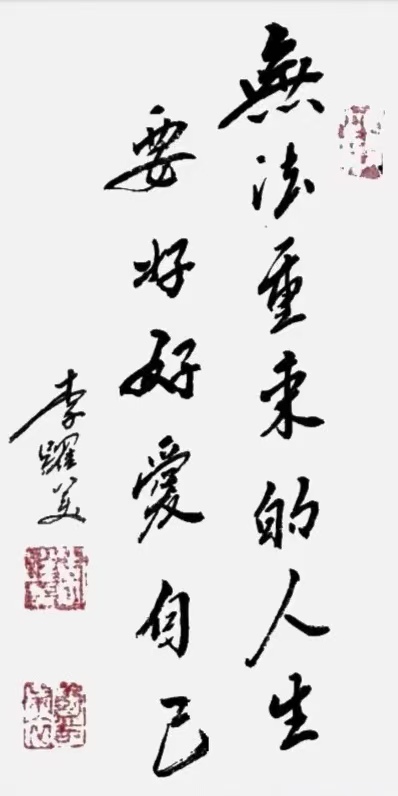 無法重来的人生
要好好愛自己
李躍美